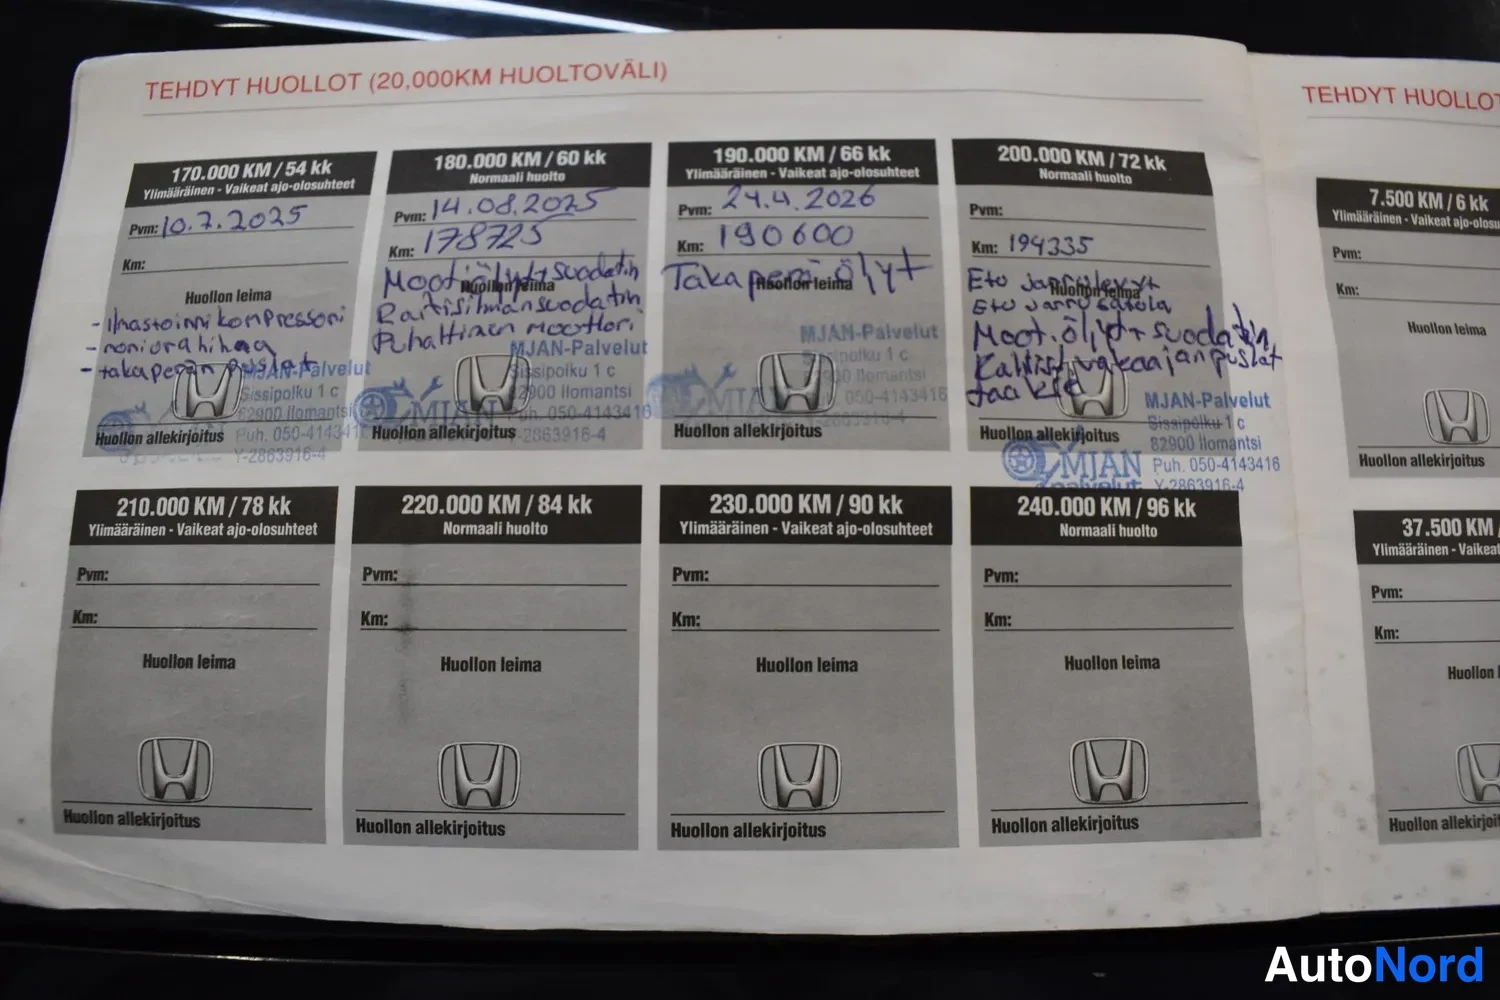 TEHDYT HUOLLOT (20,000KM HUOLTOVÄLI)
170.000 KM / 54 kk
Ylimääräinen - Vaikeat ajo-olosuhteet
Pvm: 10.7.2025
Km:
Huollon leima
- Ilmastoinnikompressori
- moniurahihna
- takaperän puslat
MJAN-Palvelut
Sissipolku 1 c
82900 Ilomantsi
Puh. 050-41434
Y-2863916-4
Huollon allekirjoitus
180.000 KM / 60 kk
Normaali huolto
Pvm: 14.08.2025
Km: 178725
Moot.öljyt+suodatin
Huollon leima
Raitisilmansuodatin
Puhaltimen moottori
MJAN-Palvelut
Sissipolku 1 c
82900 Ilomantsi
Puh. 050-4143416
-2863916-4
MJAN
Huollon allekirjoitus
190.000 KM / 66 kk
Ylimääräinen - Vaikeat ajo-olosuhteet
Pvm: 24.4.2026
Km: 190600
Takaperä öljyt
Huollon leima
MJAN-Palvelut
Sissipolku 1 c
82900 Ilomantsi
050-4143416
MJAN
Huollon allekirjoitus
200.000 KM / 72 kk
Normaali huolto
Pvm:
Km: 194335
Etu jarrulevyt
Huollon leima
Etu jarrusatula
Moot.öljyt+suodatin
Kallist.vakaajanpuslat
taakse
MJAN-Palvelut
Sissipolku 1 c
82900 Ilomantsi
Puh. 050-4143416
Y-2863916-4
MJAN
palvelut
Huollon allekirjoitus
210.000 KM / 78 kk
Ylimääräinen - Vaikeat ajo-olosuhteet
Pvm:
Km:
Huollon leima
Huollon allekirjoitus
220.000 KM / 84 kk
Normaali huolto
Pvm:
Km:
Huollon leima
Huollon allekirjoitus
230.000 KM / 90 kk
Ylimääräinen - Vaikeat ajo-olosuhteet
Pvm:
Km:
Huollon leima
Huollon allekirjoitus
240.000 KM / 96 kk
Normaali huolto
Pvm:
Km:
Huollon leima
Huollon allekirjoitus
TEHDYT HUOLLOT
7.500 KM / 6 kk
Ylimääräinen - Vaikeat ajo-olosu
Pvm:
Km:
Huollon leima
Huollon allekirjoitus
37.500 KM /
Ylimääräinen - Vaikeat
Pvm:
Km:
Huollon l
Huollon allekirjoit
AutoNord